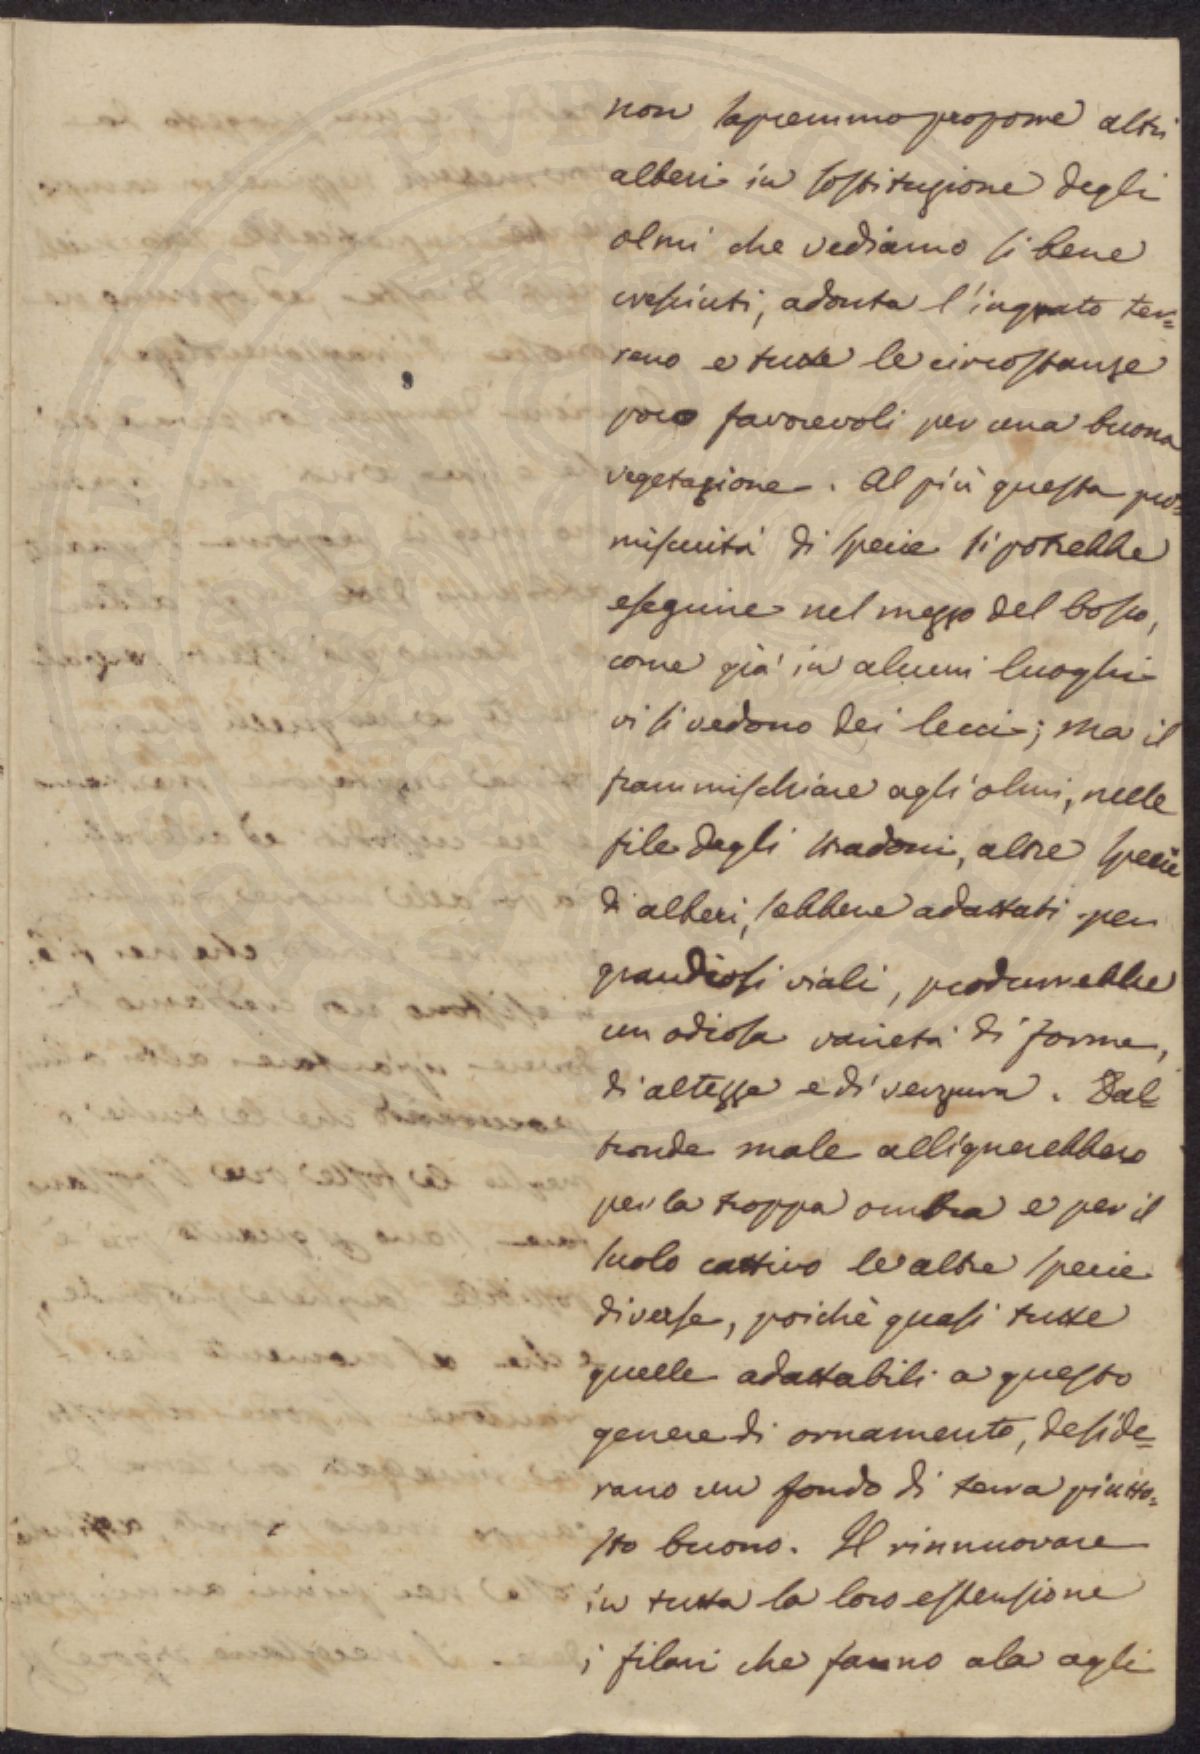 non sapremmo proporre altri
alberi in sostituzione degli
olmi che vediamo sì bene
cresciuti, adonta l'ingrato ter=
reno e tutte le circostanze
poco favorevoli per una buona
vegetazione. Al più questa pro=
miscuità di specie si potrebbe
eseguire nel mezzo del bosco,
come già in alcuni luoghi
vi si vedono dei lecci; ma il
frammischiare agli olmi, nelle
file degli stradoni, altre specie
di alberi, sebbene adattati per
grandiosi viali, produrrebbe
un odiosa varietà di forme,
di altezze e di verzura. Dal=
tronde male allignerebbero
per la troppa ombra e per il
suolo cattivo le altre specie
diverse, poichè quasi tutte
quelle adattabili a questo
genere di ornamento, deside=
rano un fondo di terra piutto=
sto buono. Il rinnuovare
in tutta la loro estensione
i filari che fanno ala agli